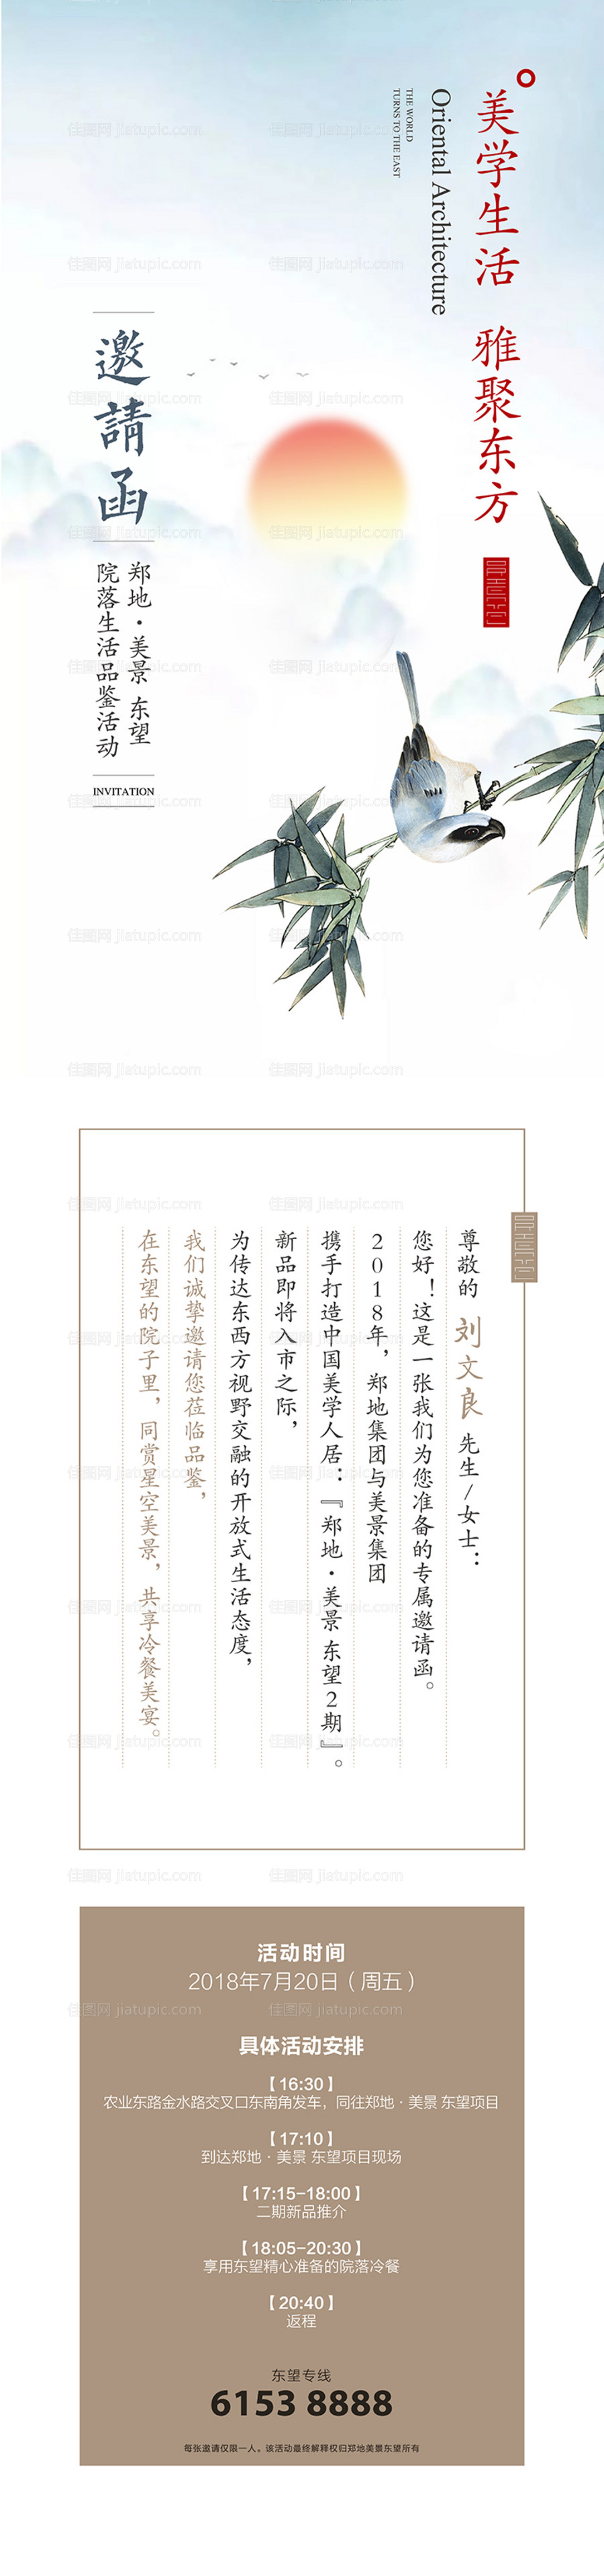 美学生活 雅聚东方
Oriental Architecture
THE WORLD
TURNS TO THE EAST
邀請函
郑地·美景 东望
院落生活品鉴活动
INVITATION
尊敬的 刘文良 先生/女士：
您好！这是一张我们为您准备的专属邀请函。
2018年，郑地集团与美景集团
携手打造中国美学人居：『郑地·美景 东望2期』。
新品即将入市之际，
为传达东西方视野交融的开放式生活态度，
我们诚挚邀请您莅临品鉴，
在东望的院子里，同赏星空美景，共享冷餐美宴。
活动时间
2018年7月20日（周五）
具体活动安排
【16:30】
农业东路金水路交叉口东南角发车，同往郑地·美景 东望项目
【17:10】
到达郑地·美景 东望项目现场
【17:15-18:00】
二期新品推介
【18:05-20:30】
享用东望精心准备的院落冷餐
【20:40】
返程
东望专线
6153 8888
每张邀请仅限一人。该活动最终解释权归郑地美景东望所有
佳图网 jiatupic.com